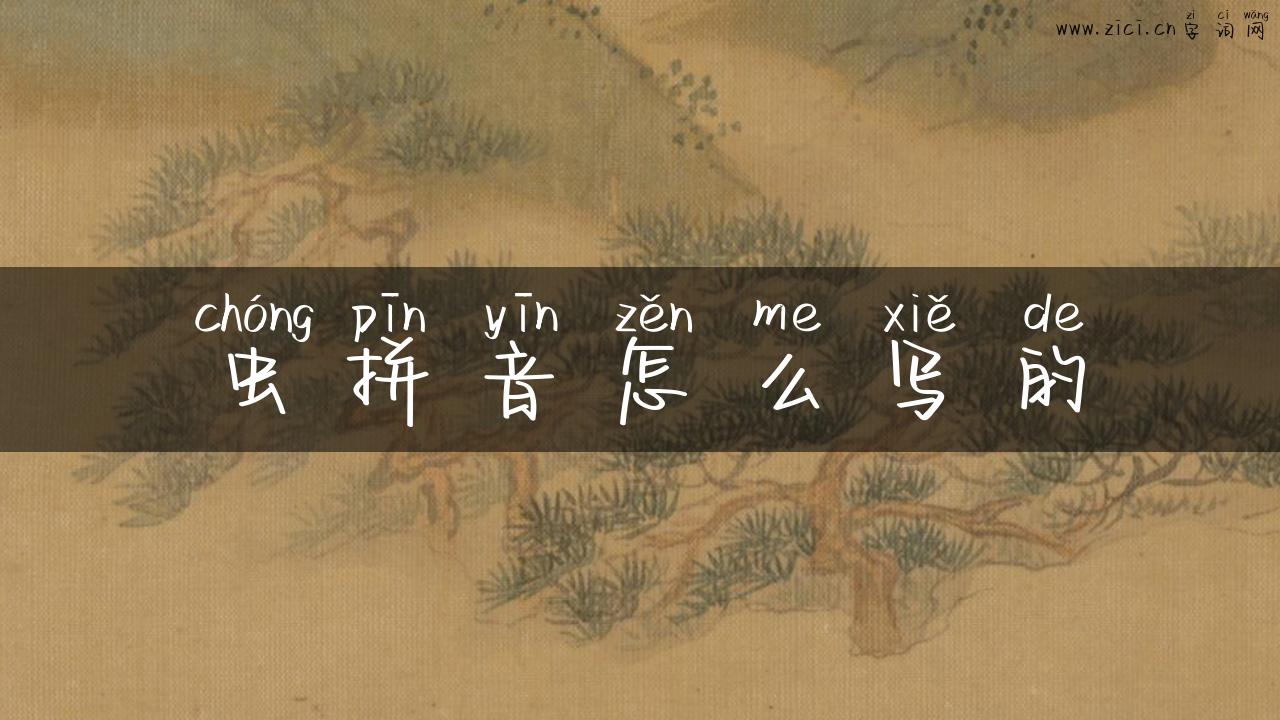 zì cí wǎng
www.zīcī.cn 字 词 网
chóng pīn yīn zěn me xiě de
虫 拼 音 怎 么 写 的